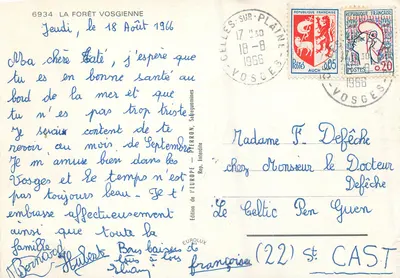 6934 LA FORÊT VOSGIENNE
Jeudi, le 18 Août 1966
Ma chère Taté, j'espère que
tu es en bonne santé au
bord de la mer et que
tu n'es pas trop triste
Je serais content de te
revoir au mois de Septembre
Je m'amuse bien dans les
Vosges et le temps n'est
pas toujours beau. Je t'
embrasse affectueusement
ainsi que toute la
famille
Bernard
Hubert
Bons baisers de
à tous
françoise
Édition de l'EUROPE - PIERRON, Sarreguemines
Rep. Interdite
EUROLUX
CELLES-SUR-PLAINE
18-8
1966
VOSGES
RÉPUBLIQUE FRANÇAISE
POSTES
0,05
AUCH
POSTES
0,20
1966
VOSGES
Madame F. Defêche
chez Monsieur le Docteur
Defêche
Le Celtic Pen Guen
(22) St. CAST